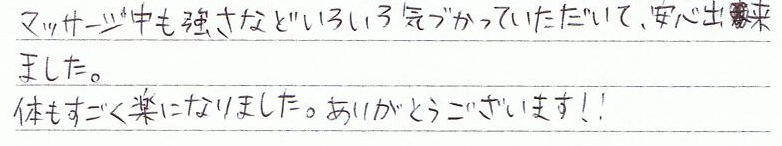 マッサージ中も強さなどいろいろ気づかっていただいて、安心出来
ました。
体もすごく楽になりました。ありがとうございます!!